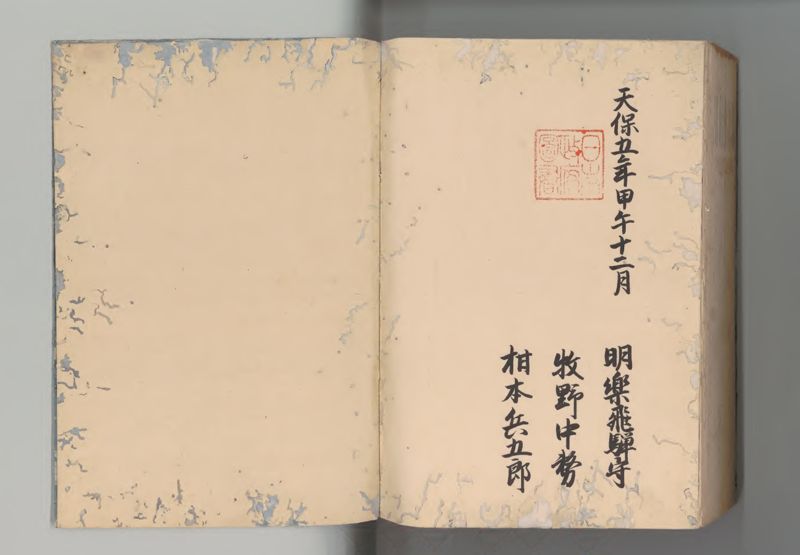 天保五年甲午十二月
明樂飛驒守
牧野中務
柑本兵五郎